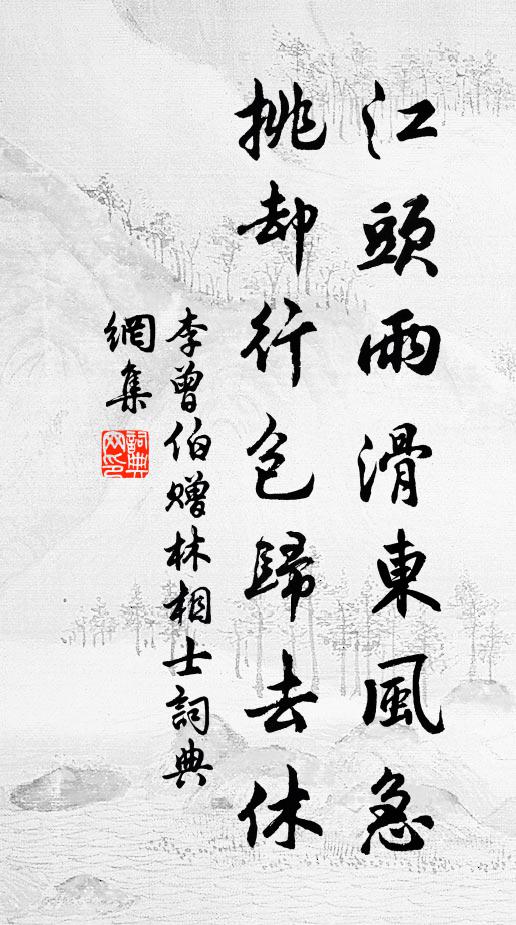 江頭雨滑東風急
挑却行包歸去休
李曾伯贈林相士詞典
網集
詞典網印